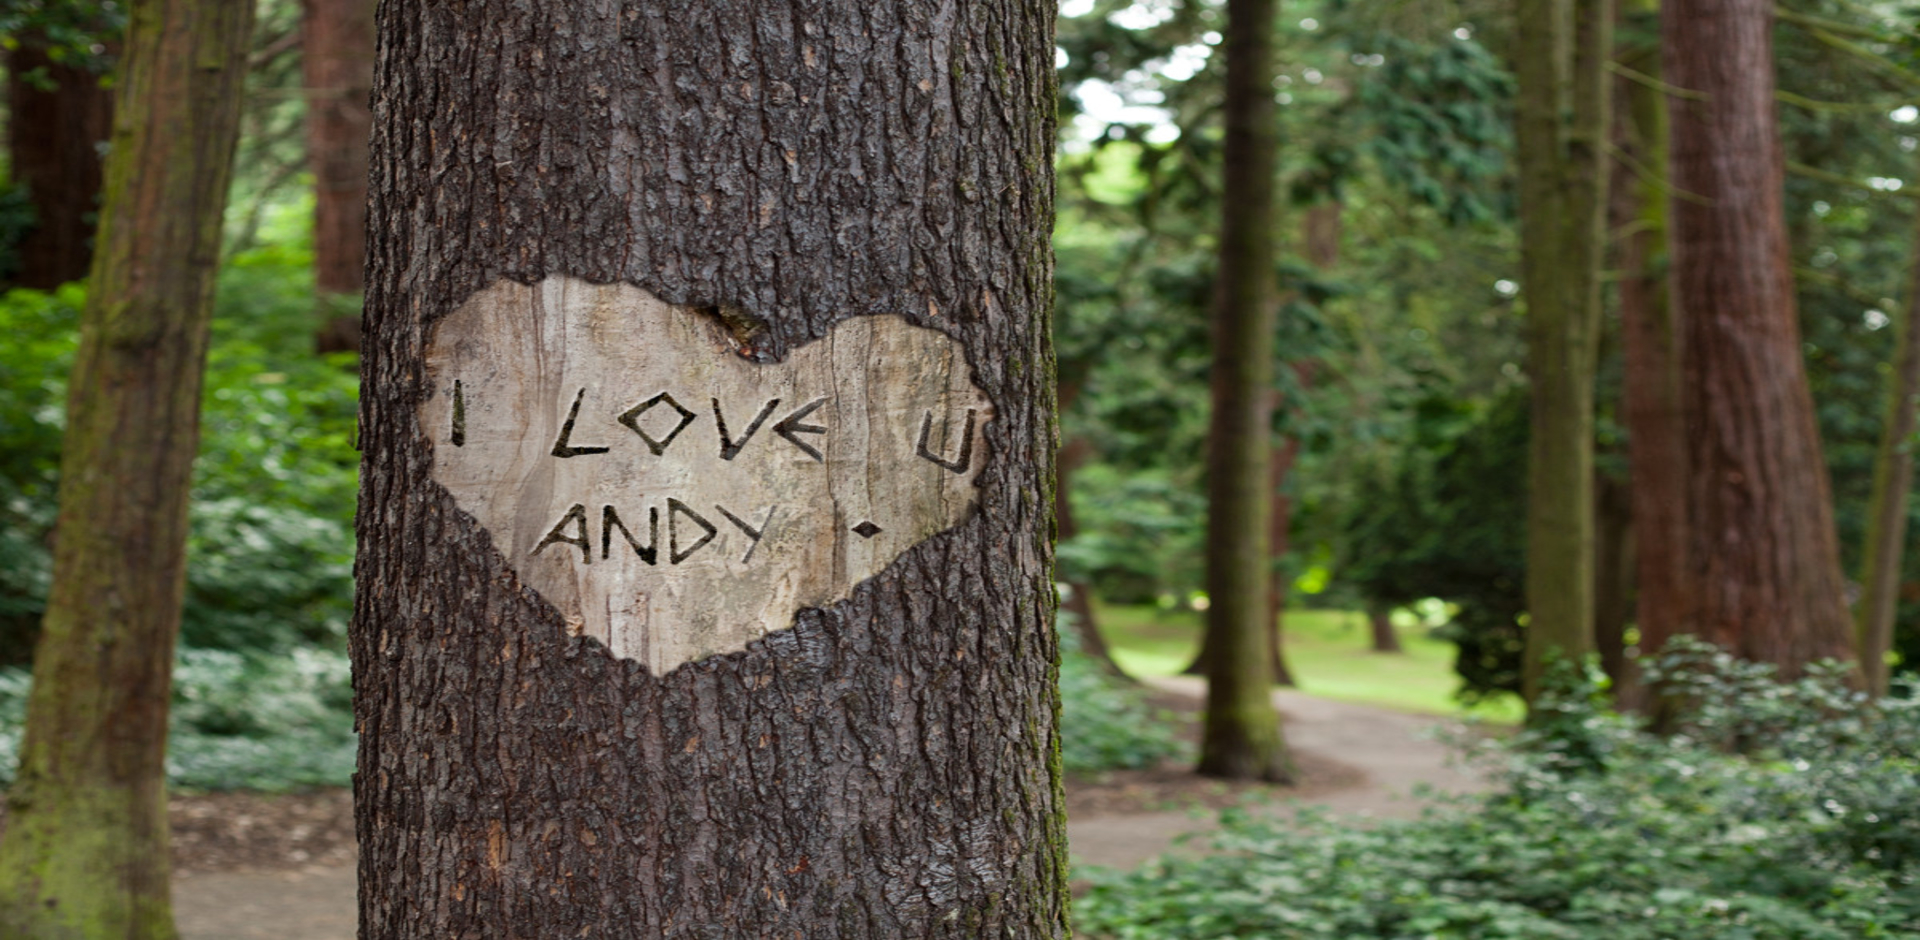 I LOVE U
ANDY .